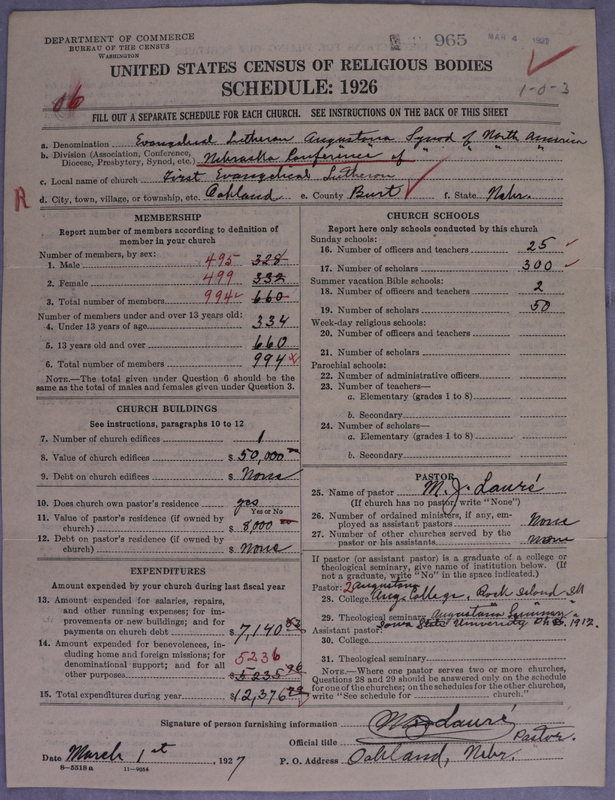 DEPARTMENT OF COMMERCE
BUREAU OF THE CENSUS
WASHINGTON
965 MAR 4 1927
UNITED STATES CENSUS OF RELIGIOUS BODIES
SCHEDULE: 1926
1-0-3
FILL OUT A SEPARATE SCHEDULE FOR EACH CHURCH. SEE INSTRUCTIONS ON THE BACK OF THIS SHEET
a. Denomination Evangelical Lutheran Augustana Synod of North America
b. Division (Association, Conference, Diocese, Presbytery, Synod, etc.) Nebraska Conference of " " " "
c. Local name of church First Evangelical Lutheran
R d. City, town, village, or township, etc. Oakland e. County Burt f. State Nebr.
MEMBERSHIP
Report number of members according to definition of member in your church
Number of members, by sex:
1. Male 495 328
2. Female 499 332
3. Total number of members 994 660
Number of members under and over 13 years old:
4. Under 13 years of age 334
5. 13 years old and over 660
6. Total number of members 994
NOTE.—The total given under Question 6 should be the same as the total of males and females given under Question 3.
CHURCH BUILDINGS
See instructions, paragraphs 10 to 12
7. Number of church edifices 1
8. Value of church edifices $50,000
9. Debt on church edifices $ None
10. Does church own pastor's residence yes
Yes or No
11. Value of pastor's residence (if owned by church) $8,000
12. Debt on pastor's residence (if owned by church) $ None
EXPENDITURES
Amount expended by your church during last fiscal year
13. Amount expended for salaries, repairs, and other running expenses; for improvements or new buildings; and for payments on church debt $7,140
14. Amount expended for benevolences, including home and foreign missions; for denominational support; and for all other purposes 5236 $5235 96
15. Total expenditures during year $12,376
CHURCH SCHOOLS
Report here only schools conducted by this church
Sunday schools:
16. Number of officers and teachers 25
17. Number of scholars 300
Summer vacation Bible schools:
18. Number of officers and teachers 2
19. Number of scholars 50
Week-day religious schools:
20. Number of officers and teachers
21. Number of scholars
Parochial schools:
22. Number of administrative officers
23. Number of teachers—
a. Elementary (grades 1 to 8)
b. Secondary
24. Number of scholars—
a. Elementary (grades 1 to 8)
b. Secondary
PASTOR
25. Name of pastor M. J. Lauré
(If church has no pastor, write "None")
26. Number of ordained ministers, if any, employed as assistant pastors None
27. Number of other churches served by the pastor or his assistants None
If pastor (or assistant pastor) is a graduate of a college or theological seminary, give name of institution below. (If not a graduate, write "No" in the space indicated.)
Pastor: 2 Augustana
28. College Aug. College, Rock Island Ill
29. Theological seminary Augustana Seminary
Iowa State University 1912.
Assistant pastor:
30. College
31. Theological seminary
NOTE.—Where one pastor serves two or more churches, Questions 28 and 29 should be answered only on the schedule for one of the churches; on the schedules for the other churches, write "See Schedule for church."
Signature of person furnishing information M. J. Lauré
Official title Pastor.
Date March 1st 1927 P. O. Address Oakland, Nebr.
8—5318 a 11—9054